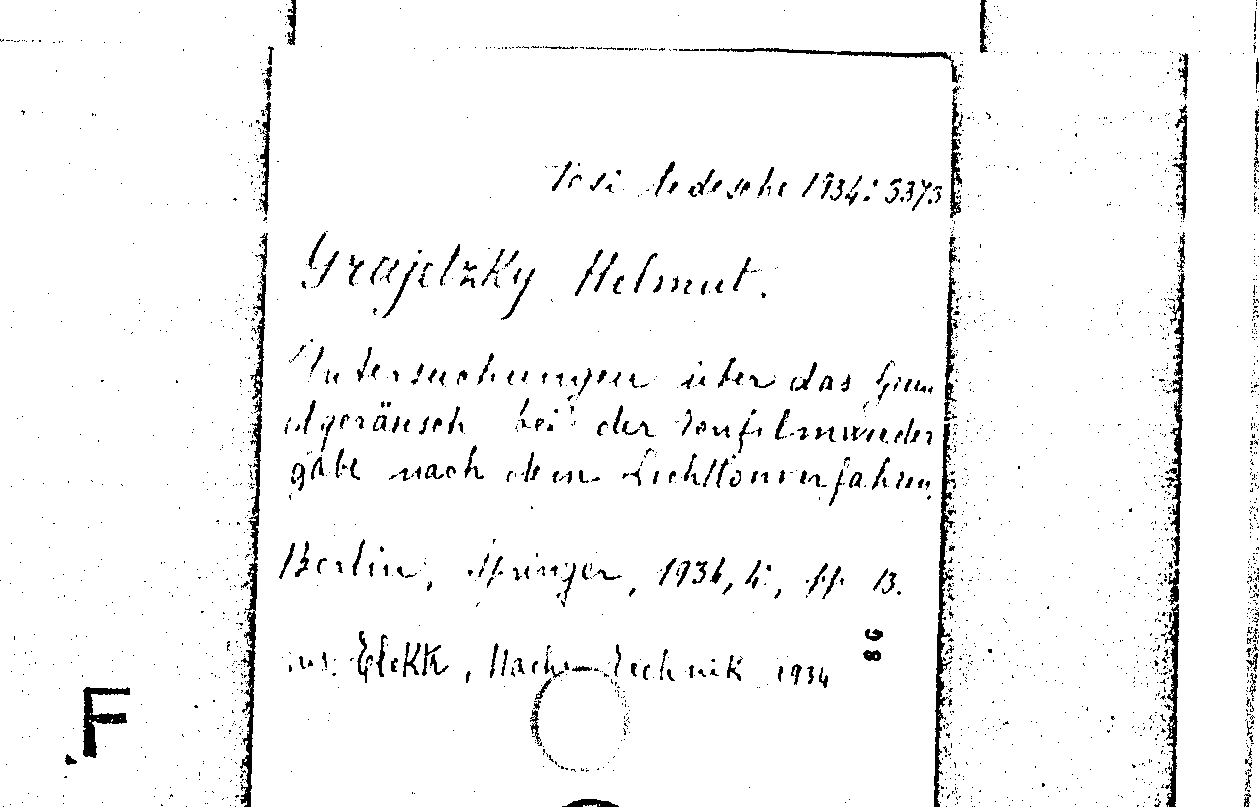 Tesi tedesche 1934: 5373
Grajetzky Helmut.
Untersuchungen über das Grun
dgeräusch bei der Tonfilmwieder
gabe nach dem Lichttonverfahren.
Berlin, Springer, 1934, 4°, pp 13.
aus. Elektr, Nachr Technik 1934
86
F